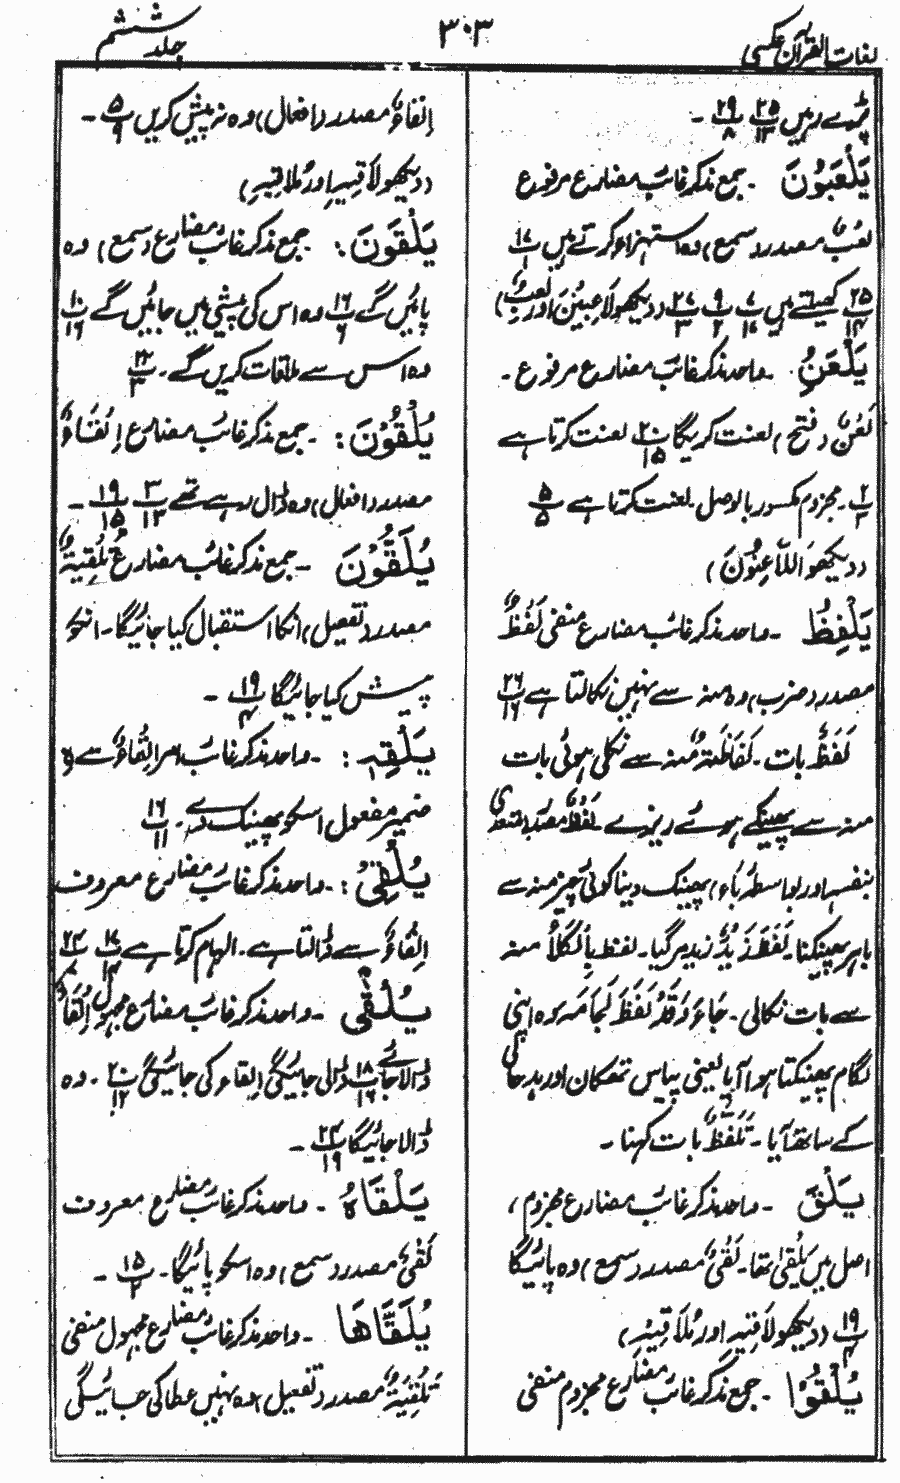 لغات القرآن عکسی
۳۰۳
جلد ششم
پڑے رہیں ۲۵/۱۳ ۲۹/۸ ۔
یَلْعَبُونَ ۔ جمع مذکر غائب مضارع مرفوع
لعب مصدر (سمع) وہ استہزاء کرتے ہیں ۱۷/۱
۲۵/۱۴ کھیلتے ہیں ۷/۱۷ ۹/۲ ۲۷/۳ (دیکھو لاعبین اور لعب)
یَلْعَنُ ۔ واحد مذکر غائب مضارع مرفوع ۔
لَعْنٌ (فتح) لعنت کریگا ۲۰/۱۵ لعنت کرتا ہے
۲/۳ ۔ مجزوم مکسور بالوصل ۔ لعنت کرتا ہے ۵/۵
(دیکھو اللّاعِنُوْنَ)
یَلْفِظُ ۔ واحد مذکر غائب مضارع منفی لَفْظٌ
مصدر (ضرب) وہ منہ سے نہیں نکالتا ہے ۲۶/۱۶
لَفْظٌ بات ۔ لَفَاظَۃٌ منہ سے نکلی ہوئی بات
منہ سے پھینکے ہوئے ریزے ۔ لَفْظٌ مصدر متعدی
بنفسہ اور بواسطہ (باء) پھینک دینا کوئی چیز منہ سے
باہر پھینکنا ۔ لَفَظَ زَیْدٌ زید مر گیا ۔ لفظ بِالْکَلَا منہ
سے بات نکالی ۔ جَاءَ وَقَدْ لَفَظَ لِجَامَہ وہ اپنی
لگام پھینکتا ہوا آیا یعنی پیاس تھکان اور بدحالی
کے ساتھ آیا ۔ تَلَفُّظٌ بات کہنا ۔
یَلْقَ ۔ واحد مذکر غائب مضارع مجزوم،
اصل میں یَلْقٰی تھا ۔ لَقْیٌ مصدر (سمع) وہ پائیگا
۱۹/۴ (دیکھو لَاقِیْہِ اور مُلَاقِیْہِ)
یُلْقُوْا ۔ جمع مذکر غائب مضارع مجزوم منفی
اِلْقَاءٌ مصدر (افعال) وہ نہ پیش کریں ۵/۹ ۔
(دیکھو لَاقِیْہِ اور مُلَاقِیْہِ)
یَلْقَوْنَ : ۔ جمع مذکر غائب مضارع (سمع) وہ
پائیں گے ۱۶/۶ وہ اس کی پیشی میں جائیں گے ۱۰/۱۶
وہ اس سے ملاقات کریں گے ۔ ۲۲/۳
یُلْقُوْنَ : ۔ جمع مذکر غائب مضارع اِلْقَاءٌ
مصدر (افعال) وہ ڈال رہے تھے ۳/۱۳ ۱۹/۱۵ ۔
یُلَقَّوْنَ ۔ جمع مذکر غائب مضارع تَلْقِیَۃٌ
مصدر (تفعیل) انکا استقبال کیا جائیگا ۔ انکو
پیش کیا جائیگا ۱۹/۴ ۔
یَلْقِہِ : ۔ واحد مذکر غائب امر اِلْقَاءٌ سے ہٖ
ضمیر مفعول اسکو پھینک دے ۔ ۱۶/۱۱
یُلْقِیْ : ۔ واحد مذکر غائب مضارع معروف
اِلْقَاءٌ سے ڈالتا ہے ۔ الہام کرتا ہے ۱۷/۱۴ ۲۴/۸
یُلْقٰی ۔ واحد مذکر غائب مضارع مجہول اِلْقَاءٌ
ڈالا جائے ۱۸/۱۶ ڈالی جائیگی اِلقاء کی جائیگی ۲۰/۱۲ ۔ وہ
ڈالا جائیگا ۲۴/۱۹ ۔
یَلْقَاہُ ۔ واحد مذکر غائب مضارع معروف
لَقْیٌ مصدر (سمع) وہ اسکو پائیگا ۔ ۱۵/۲ ۔
یُلَقَّاھَا ۔ واحد مذکر غائب مضارع مجہول منفی
تَلْقِیَۃٌ مصدر (تفعیل) وہ نہیں عطا کی جائیگی